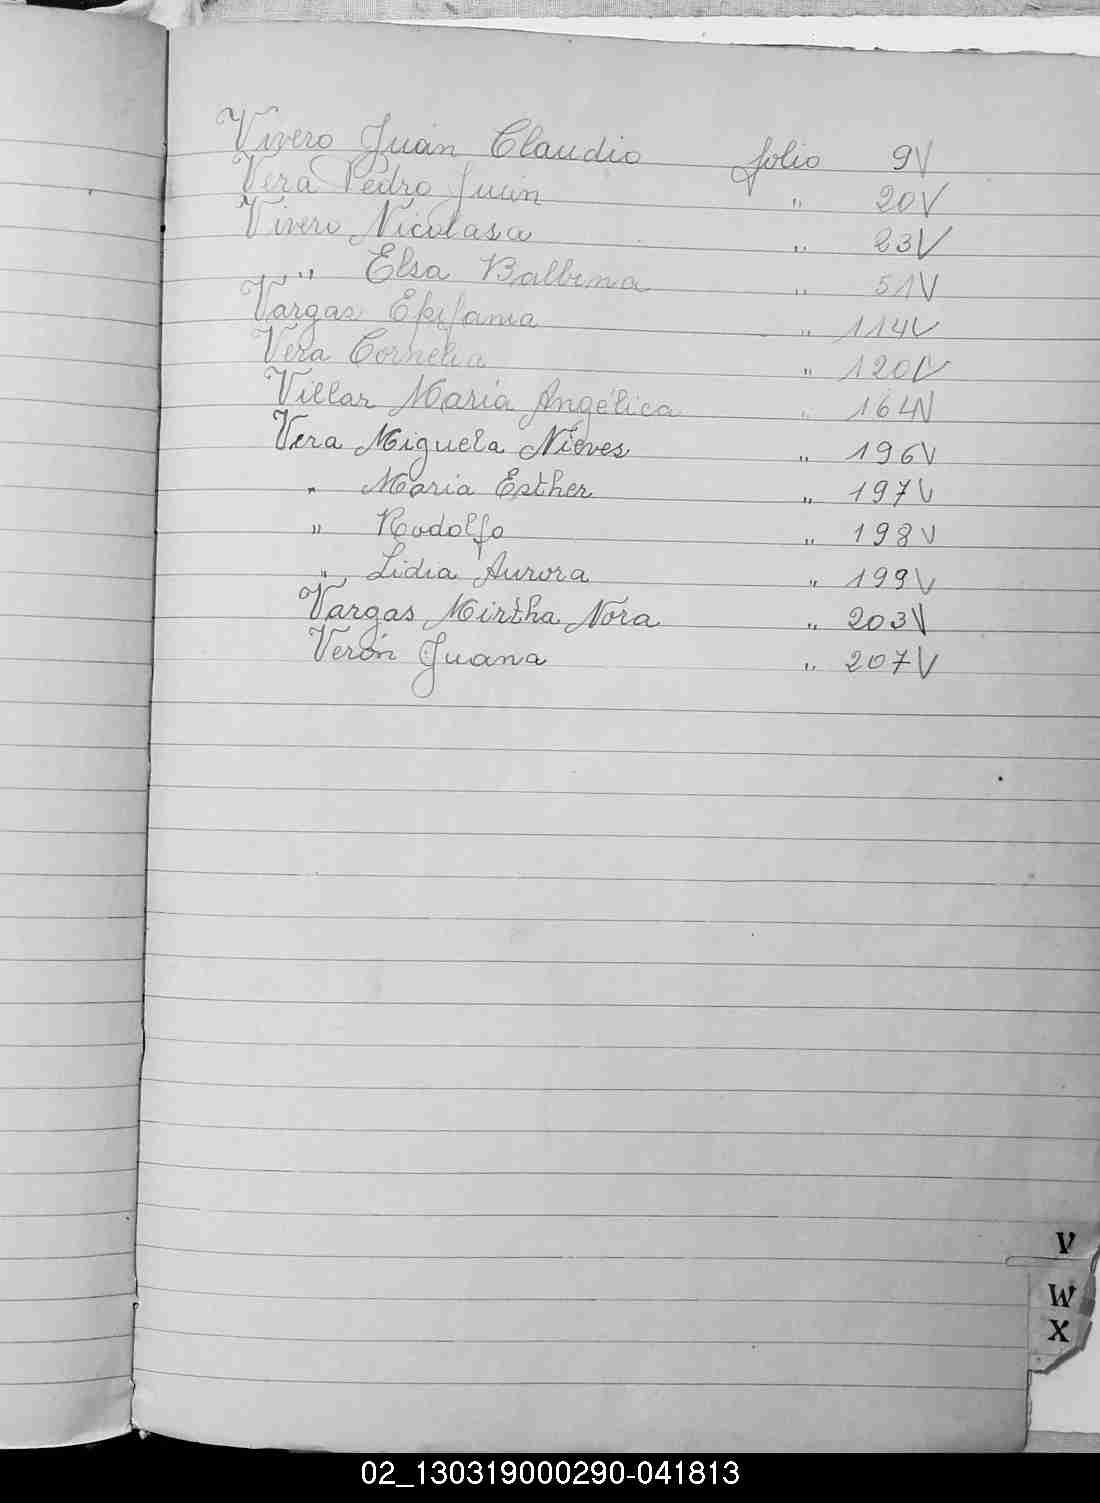 Vivero Juan Claudio folio 9V
Vera Pedro Juan " 20V
Vivero Nicolasa " 23V
" Elsa Balbina " 51V
Vargas Epifania " 114V
Vera Cornelia " 120V
Villar María Angélica " 164V
Vera Miguela Nieves " 196V
" María Esther " 197V
" Rodolfo " 198V
" Lidia Aurora " 199V
Vargas Mirtha Nora " 203V
Verón Juana " 207V
V
W
X
02_130319000290-041813